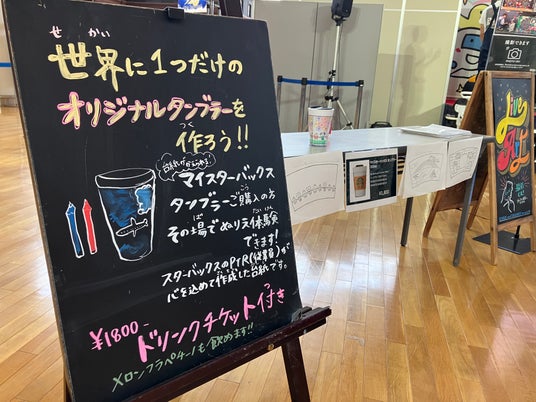 せかい
世界に1つだけの
オリジナルタンブラーを
つく
作ろう!!
マイスターバックス
こうにゅう かた
タンブラーご購入の方
ば たいけん
その場でぬりえ体験
できます!
スターバックスのPTR(従業員)が
心を込めて作成した台紙です。
¥1800-
ドリンクチケット付き
メロンフラペチーノも飲めます!!
撮影できます
Live
ART